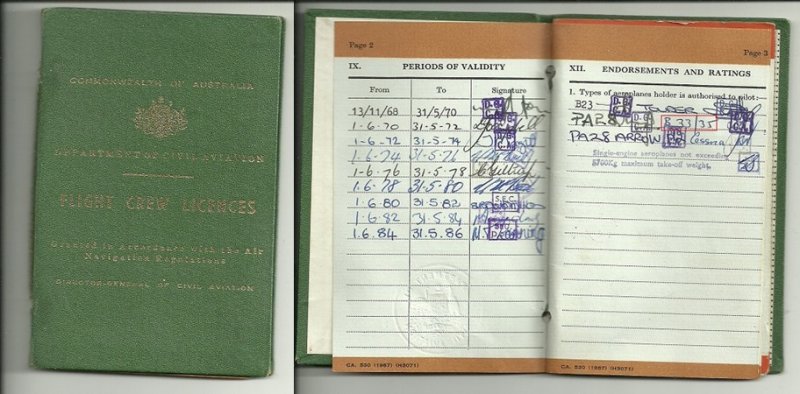 COMMONWEALTH OF AUSTRALIA
DEPARTMENT OF CIVIL AVIATION
FLIGHT CREW LICENCES
Granted in Accordance with the Air
Navigation Regulations
DIRECTOR-GENERAL OF CIVIL AVIATION
Page 2
IX. PERIODS OF VALIDITY
From To Signature
13/11/68 31/5/70
1-6-70 31-5-72
1-6-72 31-5-74
1-6-74 31-5-76
1-6-76 31-5-78
1.6.78 31.5.80
1.6.80 31.5.82
1.6.82 31.5.84
1.6.84 31.5.86
CA. 530 (1967) (H3071)
Page 3
XII. ENDORSEMENTS AND RATINGS
1. Types of aeroplanes holder is authorised to pilot:—
B23
PA28 B 33/35
PA28 ARROW Cessna
Single-engine aeroplanes not exceeding
5700Kg maximum take-off weight.
CA. 530 (1967) (H3071)